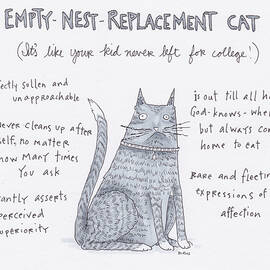 EMPTY-NEST-REPLACEMENT CAT
(It's like your kid never left for college!)
fectly sullen and
unapproachable
ever cleans up after
self, no matter
how many times
You ask
tantly asserts
perceived
uperiority
is out till all h
God-knows-wher
but always com
home to eat
Rare and fleetin
expressions of
affection